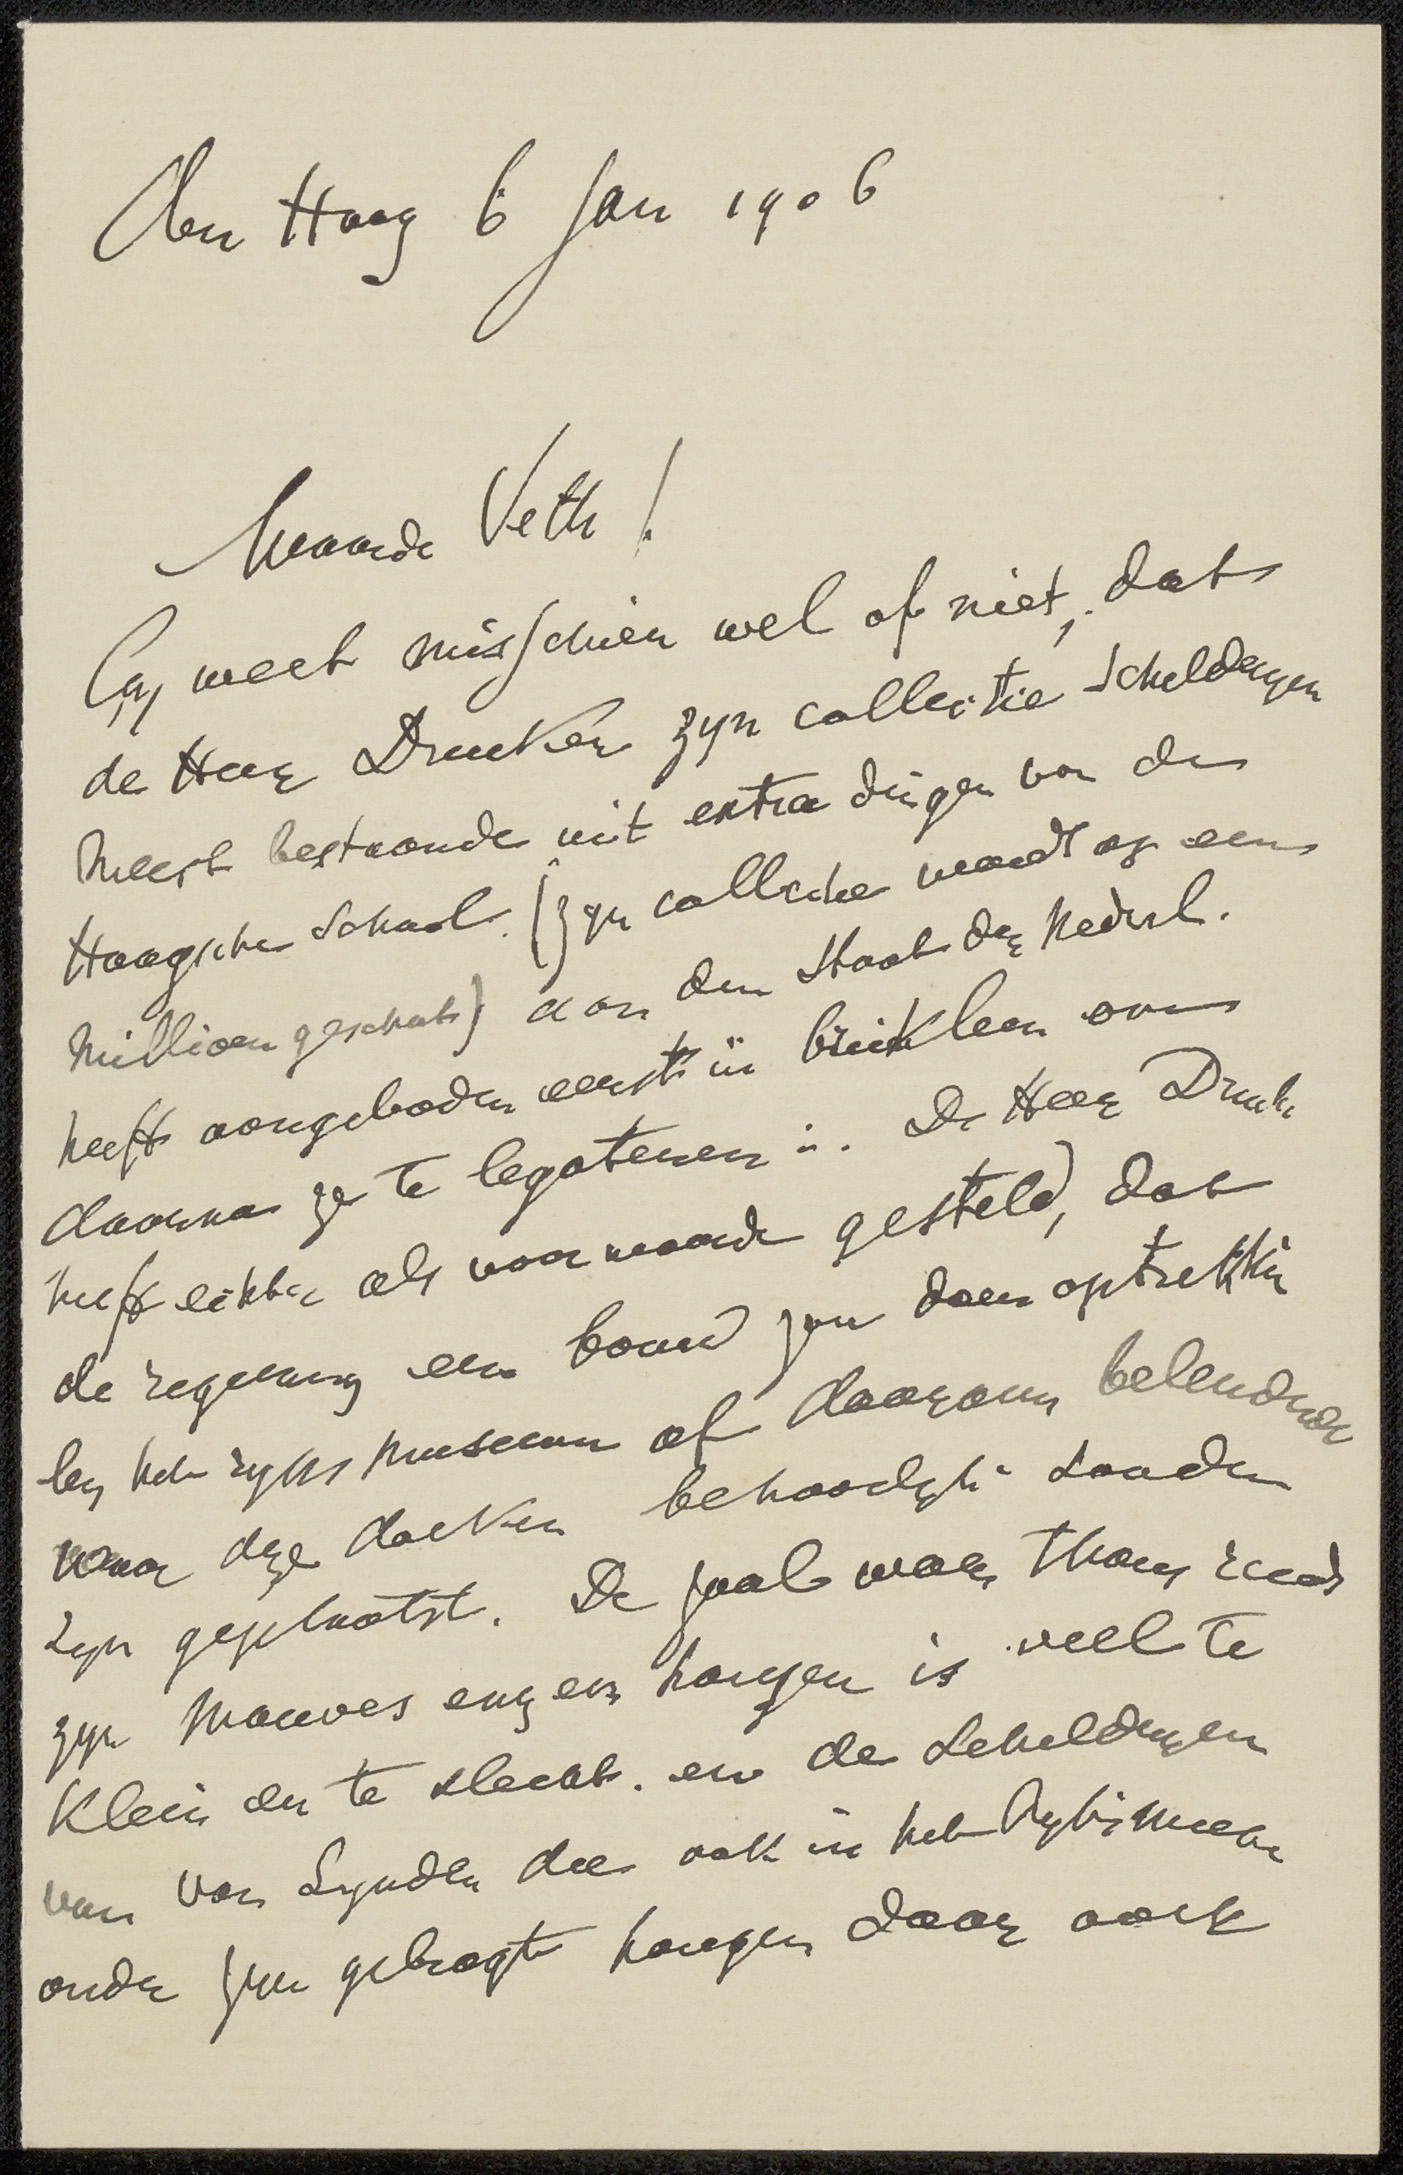 Den Haag 6 Jan 1906
Waarde Veth!
Gy weet misschien wel of niet, dat
de Heer Drucker zyn collectie Schilderyen
meest bestaande uit extra dingen van de
Haagsche School. (zyn collectie wordt op een
millioen geschat) aan den Staat der Nederl.
heeft aangeboden eerst in bruikleen om
daarna ze te legateeren. De Heer Druck
heeft echter als voorwaarde gesteld, dat
de regeering een bouw zou doen optrekken
by het ryks museum of daaraan belendende
waar deze doeken behoorlyk zouden
zyn geplaatst. De zaal waar thans reeds
zyn Mauves enz enz hangen is veel te
Klein en te slecht. en de Schilderyen
van van Lynden die ook in het Ryks
onder zyn gebragt hangen daar ook